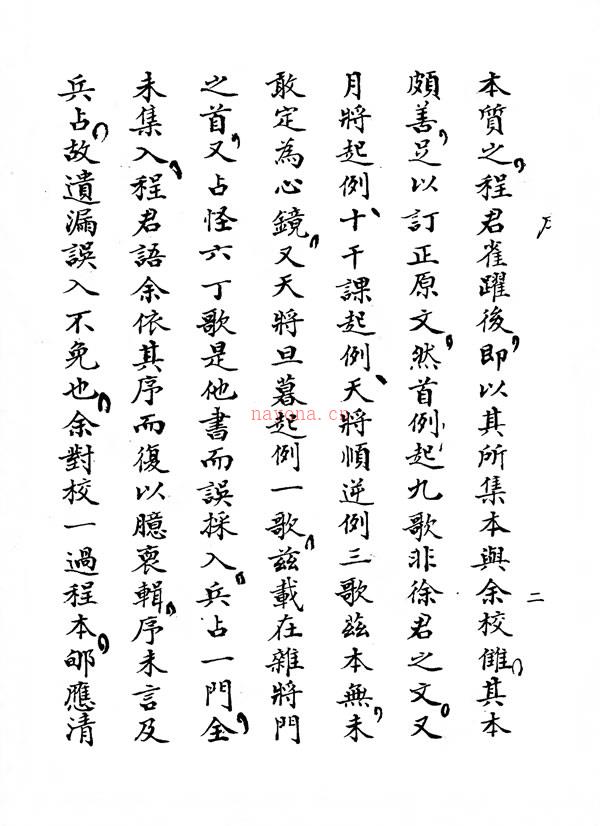 二
本質之，程君雀躍後，即以其所集本與余校讎，其本
頗善，足以訂正原文，然首例起九歌非徐君之文。又
月將起例、十干課起例、天將順逆例三歌茲本無，未
敢定為心鏡，又天將旦暮起例一歌，茲載在雜將門
之首，又占怪六丁歌是他書而誤採入，兵占一門全
未集入，程君語余依其序而復以臆裒輯，序未言及
兵占，故遺漏誤入不免也，余對校一過程本，邮應清
nayona.cn